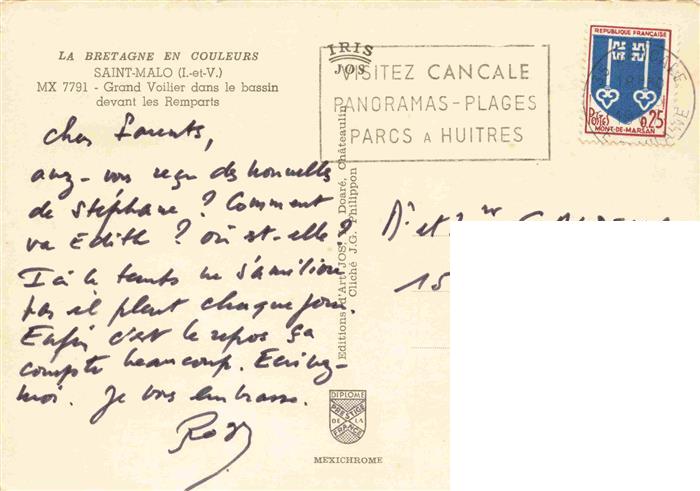 LA BRETAGNE EN COULEURS
SAINT-MALO (I.-et-V.)
MX 7791 - Grand Voilier dans le bassin
devant les Remparts
cher Parents,
avez-vous reçu des nouvelles
de Stéphane ? Comment
va Edith ? où est-elle ?
Ici le temps ne s'améliore
pas il pleut chaque jour.
Enfin c'est le repos ça
compte beaucoup. Ecrivez-
moi. Je vous embrasse.
IRIS
JOS
VISITEZ CANCALE
PANORAMAS-PLAGES
PARCS A HUITRES
REPUBLIQUE FRANÇAISE
POSTES 0,25
MONT-DE-MARSAN
Editions d'Art JOS, Doaré, Châteaulin
Cliché J.G. Philippon
et
15
DIPLOME
PRESTIGE
DE LA
FRANCE
MEXICHROME